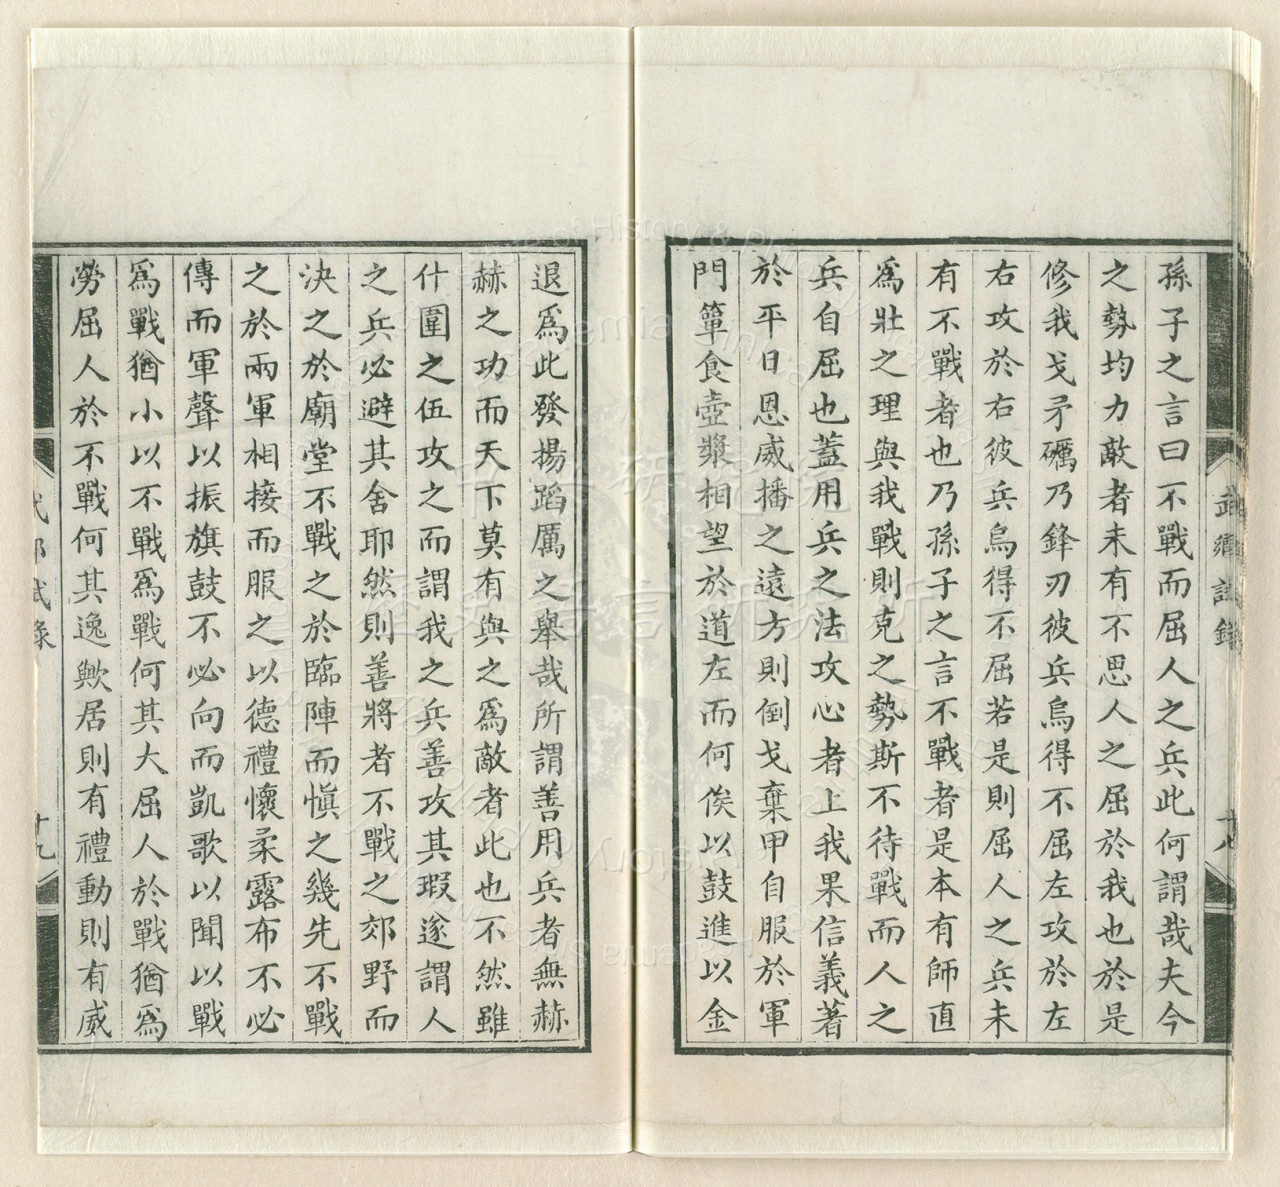 孫子之言曰不戰而屈人之兵此何謂哉夫今
之勢均力敵者未有不思人之屈於我也於是
修我戈矛礪乃鋒刃彼兵烏得不屈左攻於左
右攻於右彼兵烏得不屈若是則屈人之兵未
有不戰者也乃孫子之言不戰者是本有師直
為壯之理與我戰則克之勢斯不待戰而人之
兵自屈也蓋用兵之法攻心者上我果信義著
於平日恩威播之遠方則倒戈棄甲自服於軍
門簞食壺漿相望於道左而何俟以鼓進以金
退為此發揚蹈厲之舉哉所謂善用兵者無赫
赫之功而天下莫有與之為敵者此也不然雖
什圍之伍攻之而謂我之兵善攻其瑕遂謂人
之兵必避其舍耶然則善將者不戰之郊野而
決之於廟堂不戰之於臨陣而慎之幾先不戰
之於兩軍相接而服之以德禮懷柔露布不必
傳而軍聲以振旗鼓不必向而凱歌以聞以戰
為戰猶小以不戰為戰何其大屈人於戰猶為
勞屈人於不戰何其逸歟居則有禮動則有威
十九